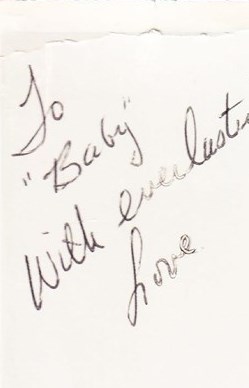 To
"Baby"
With everlastin
Love